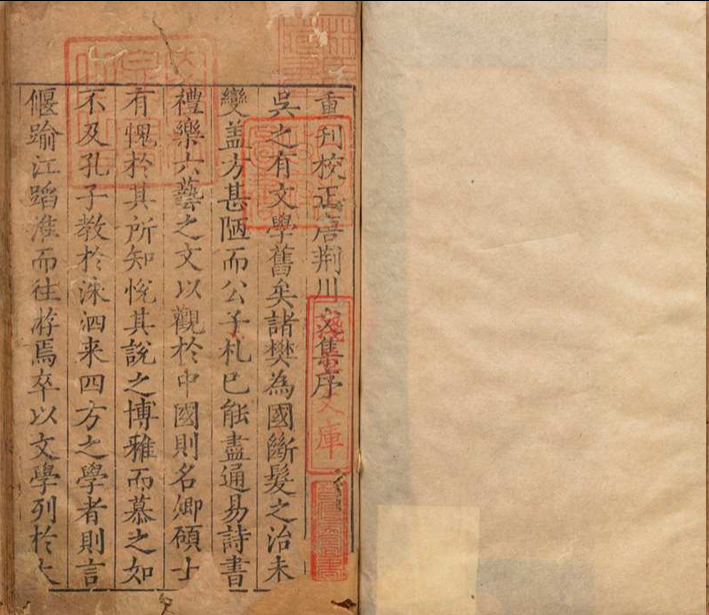 重刊校正唐荆川文集序
吳之有文學舊矣諸樊為國斷髮之治未
變盖方甚陋而公子札已能盡通易詩書
禮樂六藝之文以觀於中國則名卿碩士
有愧於其所知悅其說之博雅而慕之如
不及孔子教於洙泗来四方之學者則言
偃踰江蹈淮而往游焉卒以文學列於大
文庫